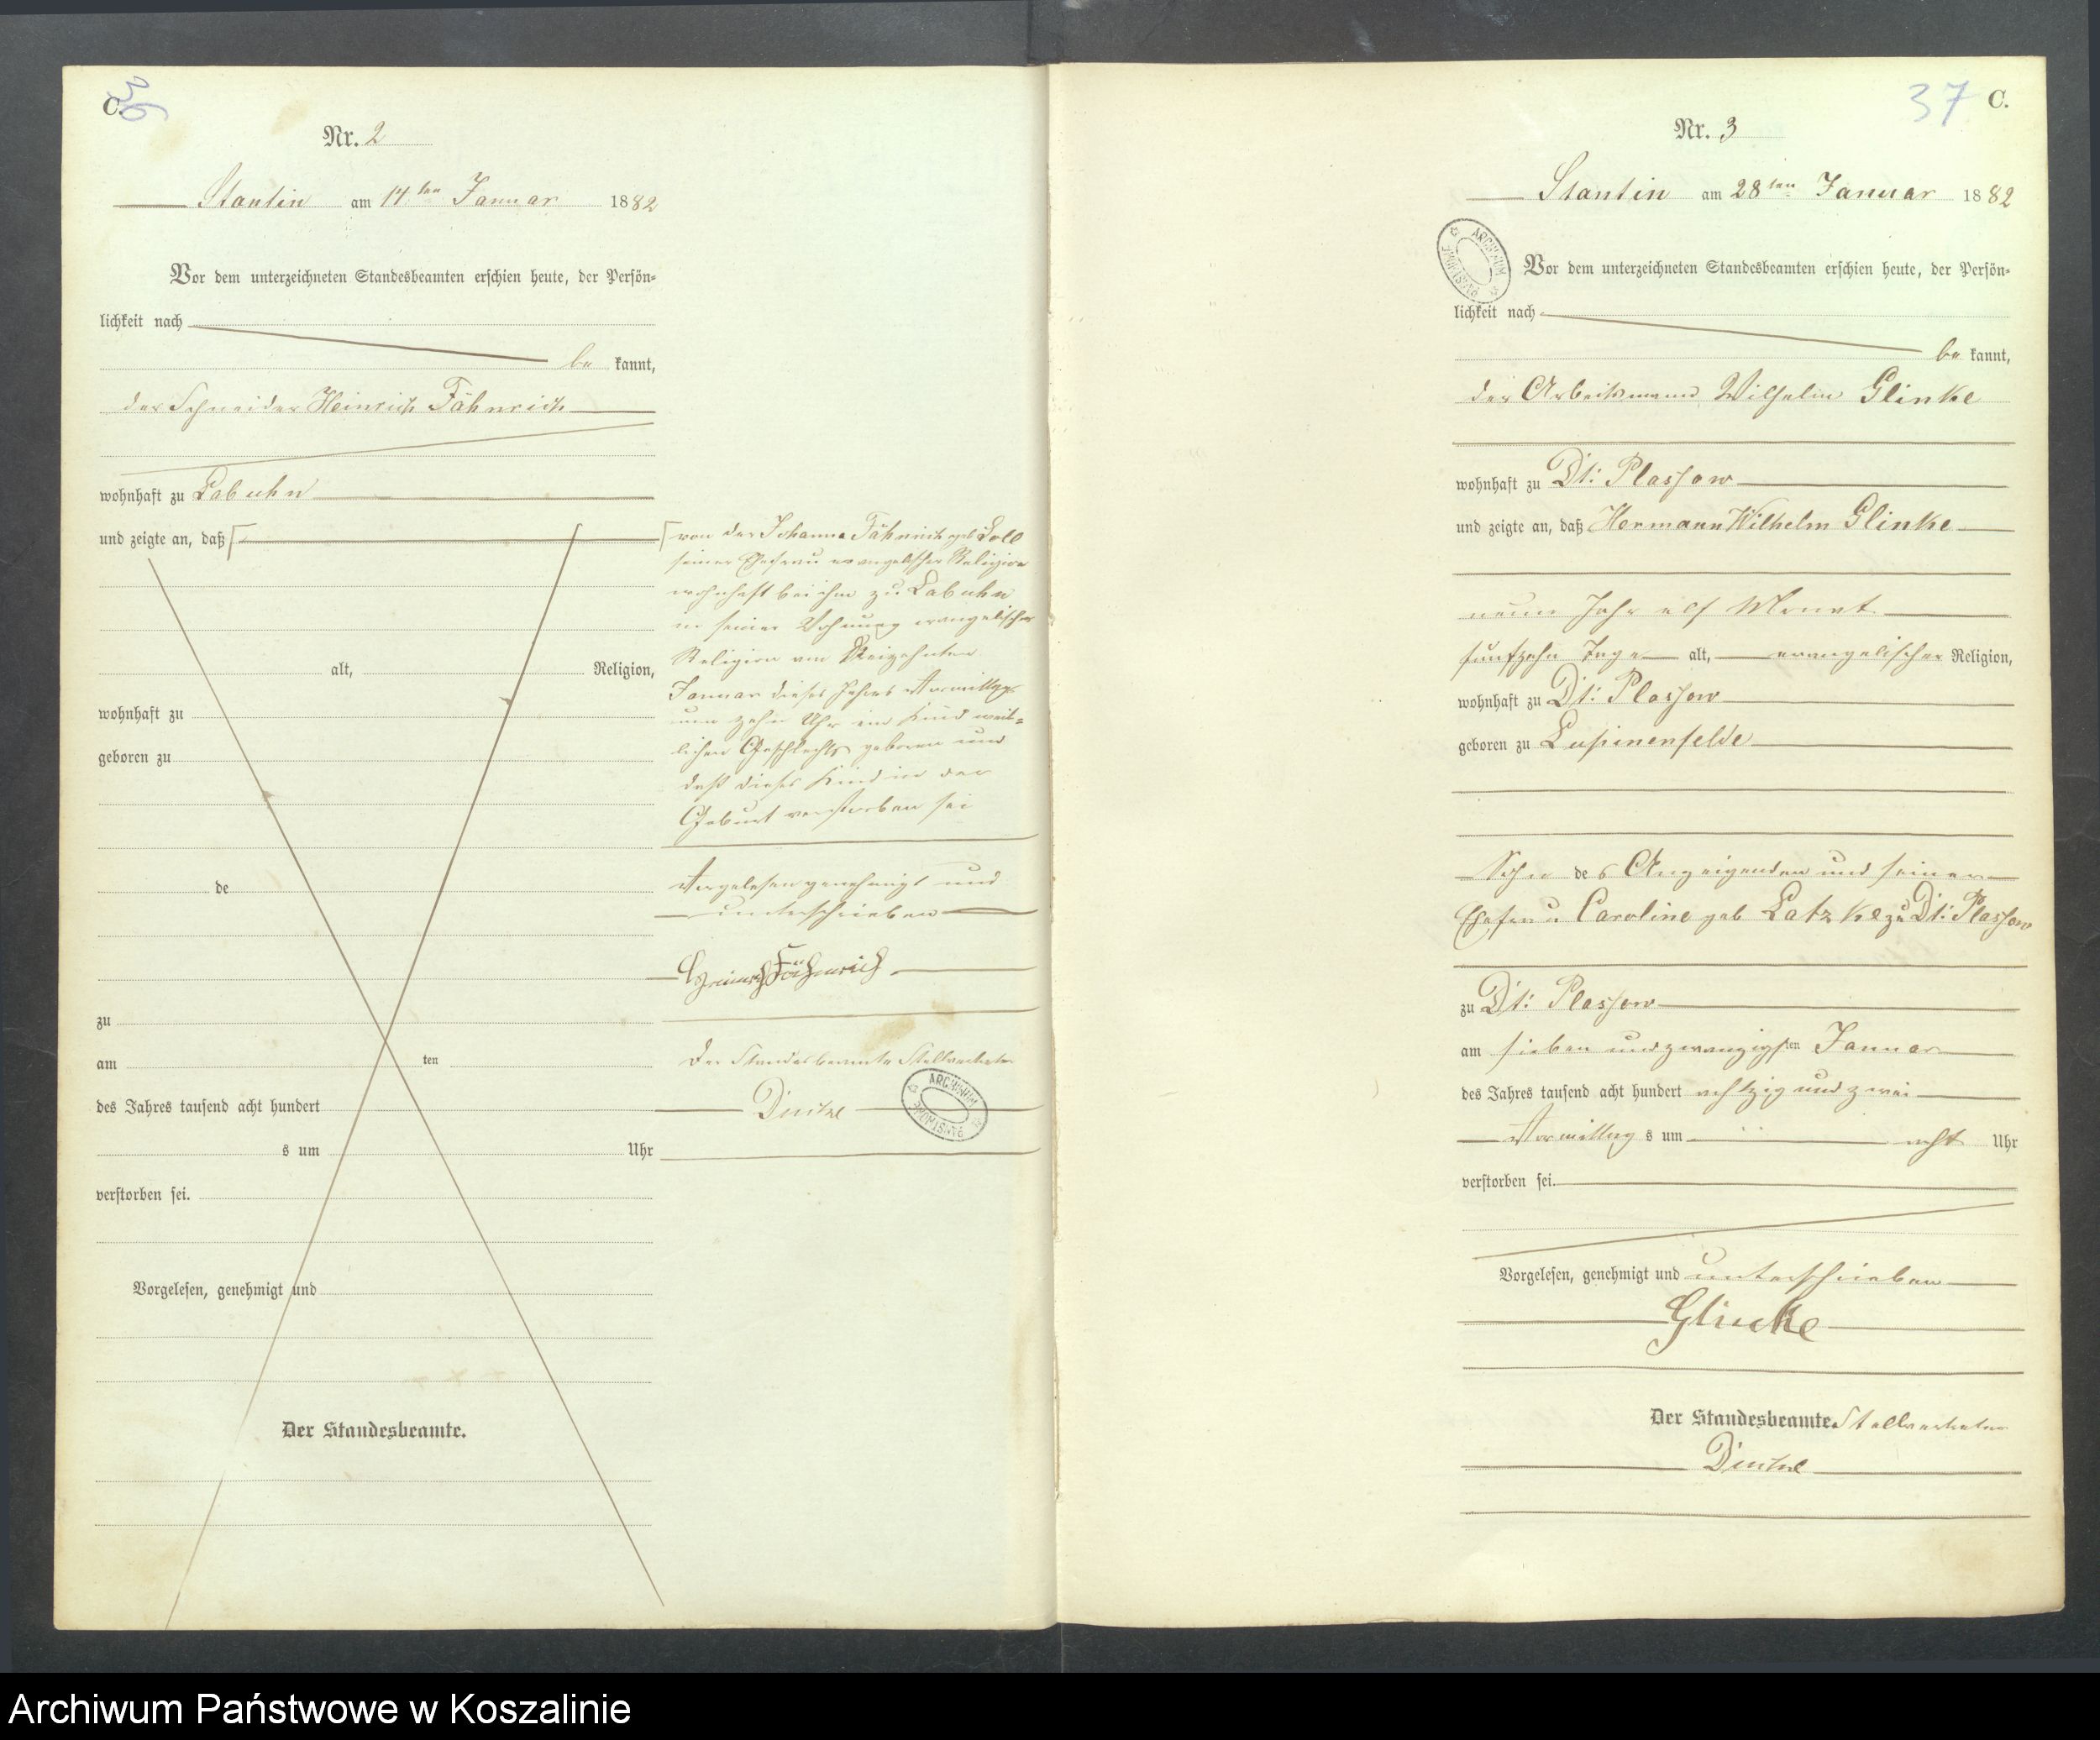 C.
36
Nr. 2
Stantin am 14ten Januar 1882
Vor dem unterzeichneten Standesbeamten erschien heute, der Persön-
lichkeit nach
be kannt,
der Schneider Heinrich Fähnrich
wohnhaft zu Labuhn
und zeigte an, daß
alt, Religion,
wohnhaft zu
geboren zu
de
zu
am ten
des Jahres tausend acht hundert
s um Uhr
verstorben sei.
Vorgelesen, genehmigt und
Der Standesbeamte.
von der Johanna Fähnrich geb Loll
seiner Ehefrau evangelischer Religion
wohnhaft bei ihm zu Labuhn
in seiner Wohnung evangelischer
Religion am Januar dieses Jahres Vormittags
um zehn Uhr ein Kind weib-
lichen Geschlechts geboren und
daß dieses Kind in der
Geburt verstorben sei
Vorgelesen genehmigt und
unterschrieben
Heinrich Fähnrich
Der Standesbeamte Stellvertreter
ARCHIWUM PAŃSTWOWE
37 C.
Nr. 3
Stantin am 28ten Januar 1882
ARCHIWUM PAŃSTWOWE
Vor dem unterzeichneten Standesbeamten erschien heute, der Persön-
lichkeit nach
be kannt,
der Arbeitsmann Wilhelm Glinke
wohnhaft zu Dt: Plassow
und zeigte an, daß Hermann Wilhelm Glinke
neun Jahr elf Monat
fünfzehn Tage alt, evangelischer Religion,
wohnhaft zu Dt: Plassow
geboren zu Lupinenfelde
Sohn des Anzeigenden und seiner
Ehefrau Caroline geb Latzke zu Dt: Plassow
zu Dt: Plassow
am sieben und zwanzigsten Januar
des Jahres tausend acht hundert achtzig und zwei
Vormittag s um acht Uhr
verstorben sei.
Vorgelesen, genehmigt und unterschrieben
Glincke
Der Standesbeamte Stellvertreter
Archiwum Państwowe w Koszalinie